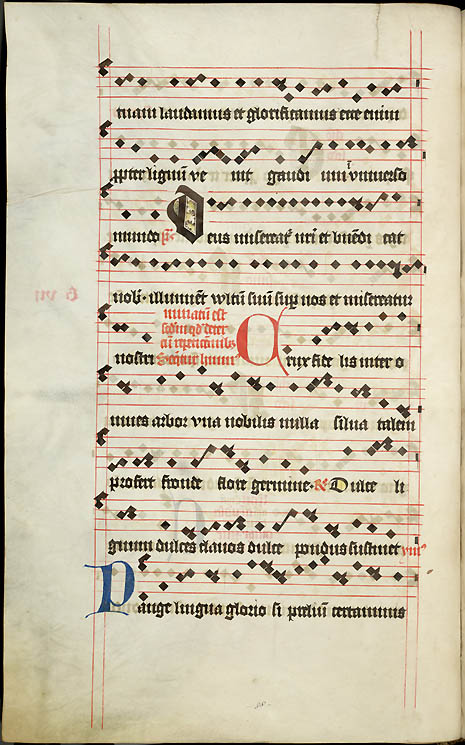 mam laudamus et glorificamus ecce enim
ꝓpter lignū ve nit gaudi um ī vniuerso
mundo ps̄. Deus misereat̉ nr̄i et bn̄edi cat
nob̉. illumīet vultū suū suꝑ nos et misereatur
nostri Crux fide lis inter o
mnes arbor vna nobilis nulla silua talem
profert fronde flore germine. ℟ Dulce li
gnum dulces clauos dulce pondus sustinet
Pange lingua glorio si preliū certaminis